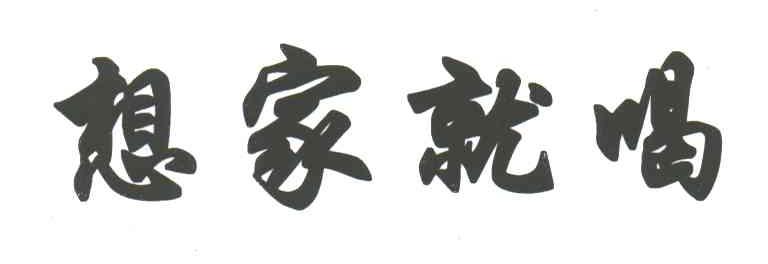 想家就喝